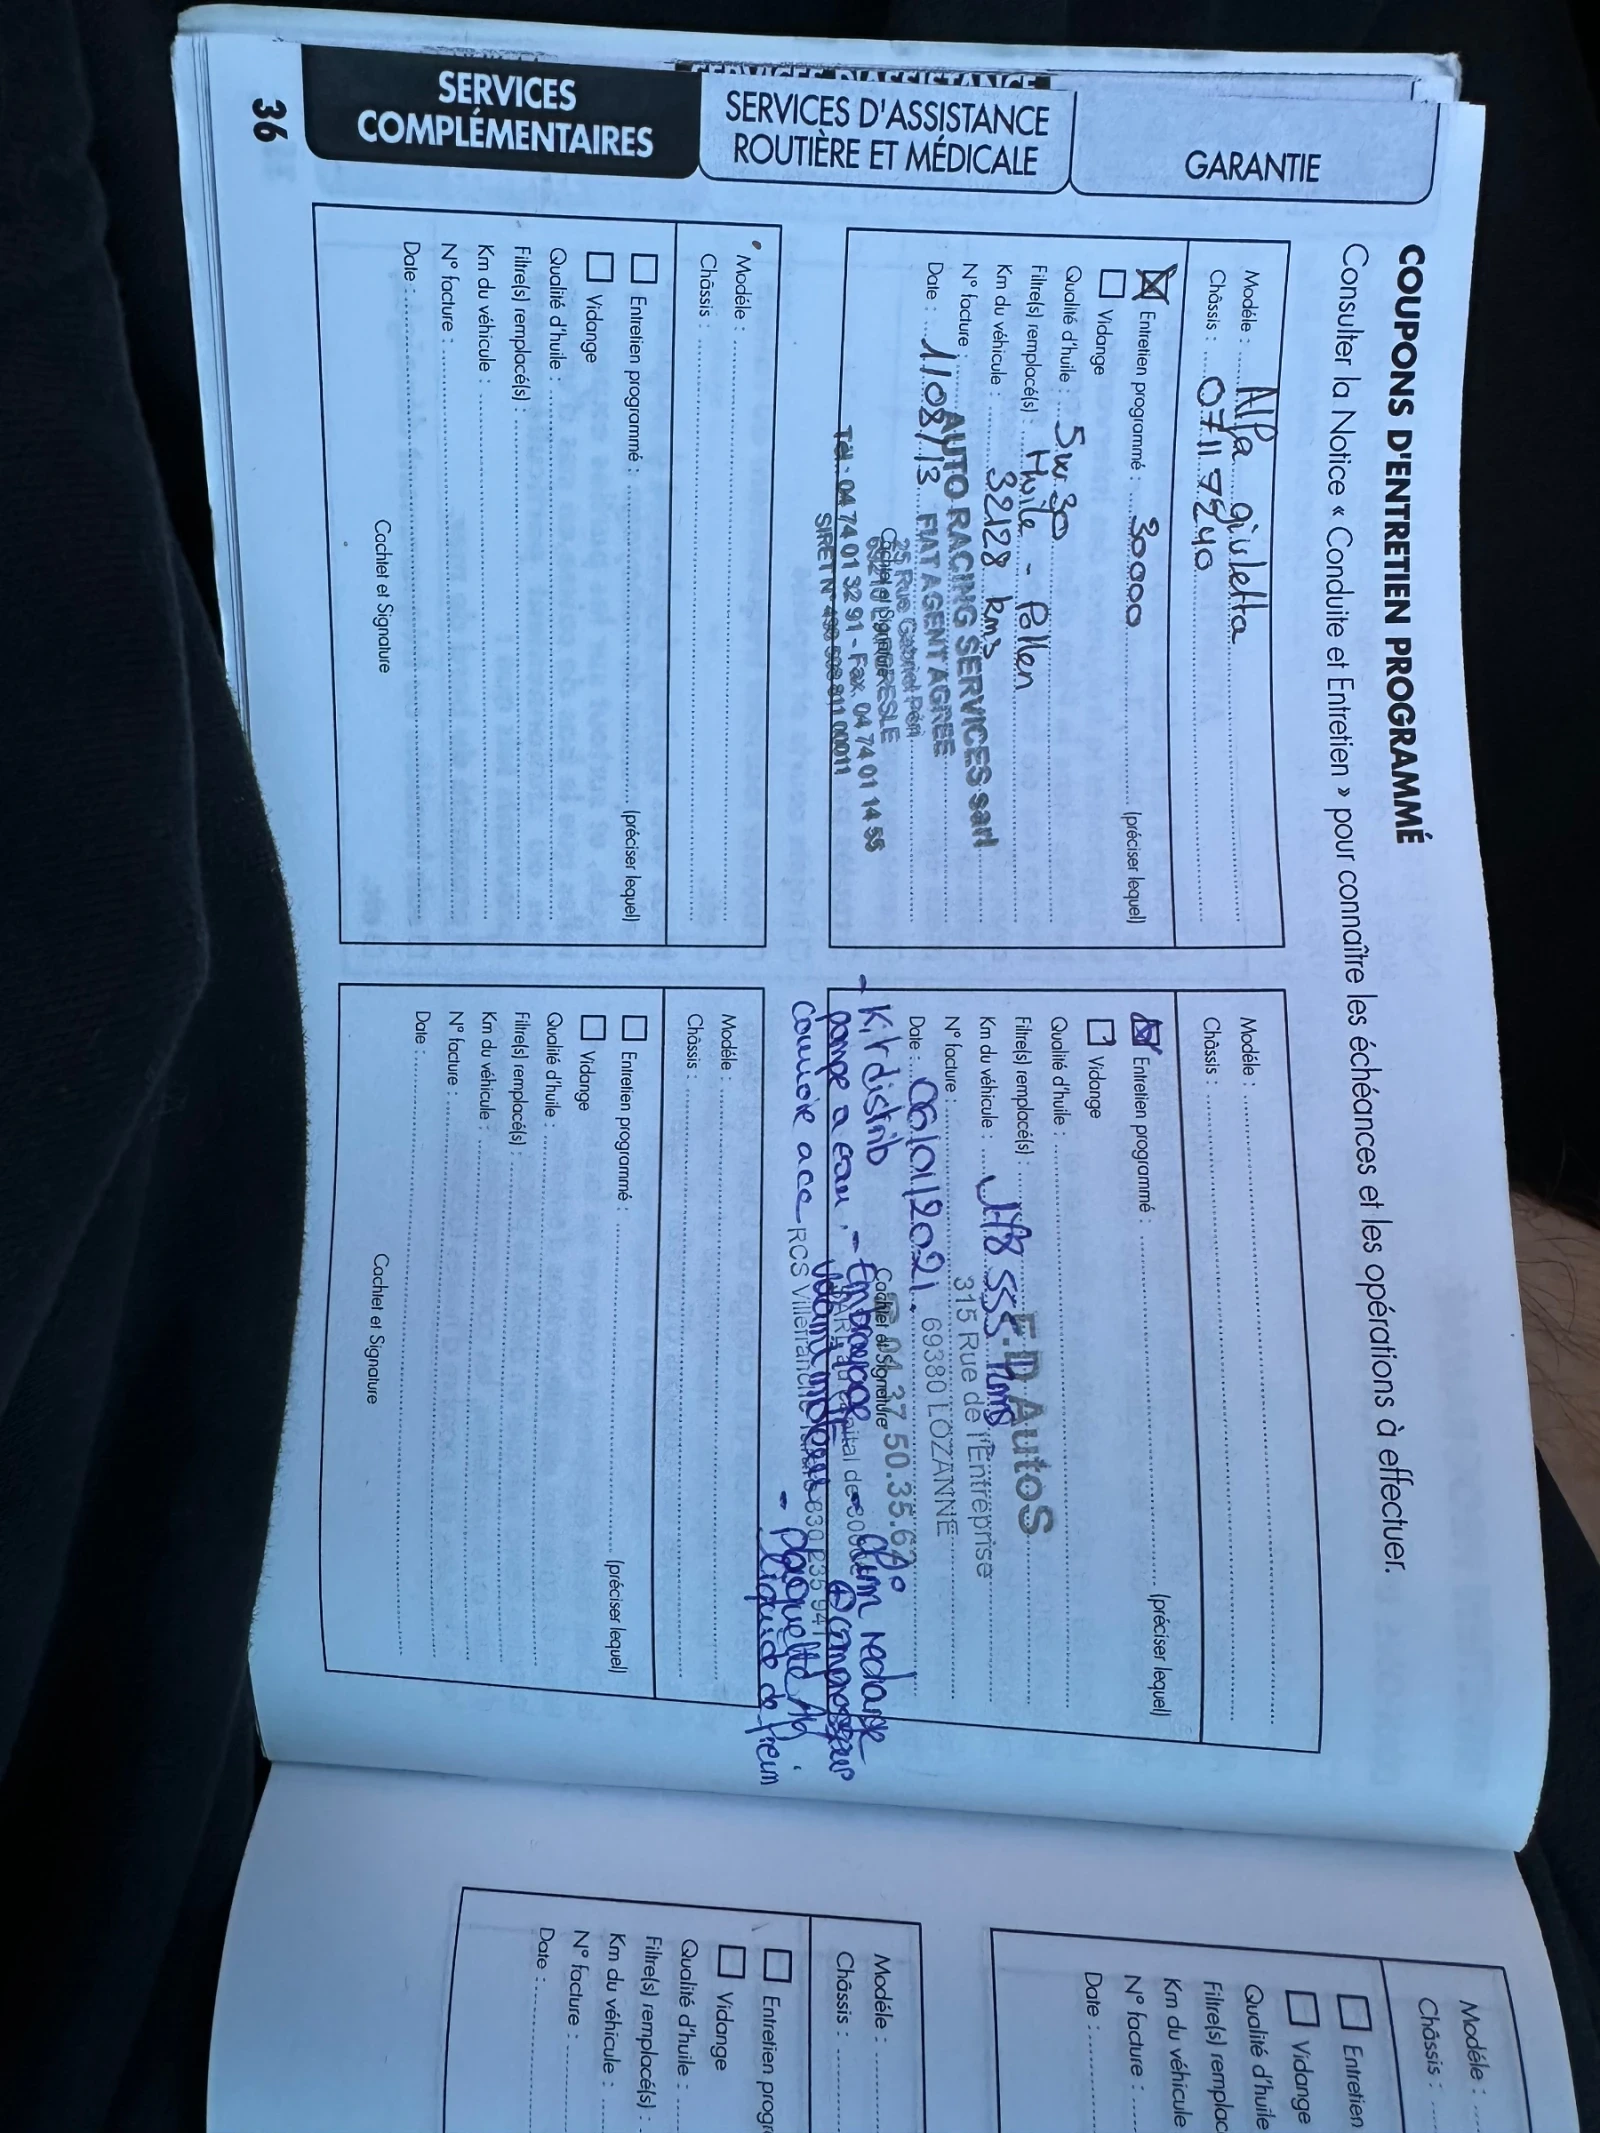 COUPONS D'ENTRETIEN PROGRAMMÉ
Consulter la Notice « Conduite et Entretien » pour connaître les échéances et les opérations à effectuer.
GARANTIE
SERVICES D'ASSISTANCE
ROUTIÈRE ET MÉDICALE
SERVICES D'ASSISTANCE
SERVICES
COMPLÉMENTAIRES
36
Modèle : Alfa giuletta
Châssis : 07117240
Entretien programmé : 30000 (préciser lequel)
Vidange
Qualité d'huile : 5w30
Filtre(s) remplacé(s) : Huile - Pollen
Km du véhicule : 32128 kms
N° facture :
Date : 1/08/13
Cachet et Signature
AUTO RACING SERVICES sarl
FIAT AGENT AGREE
25 Rue Gabriel Péri
69210 L'ARBRESLE
Tél. : 04 74 01 32 91 - Fax. 04 74 01 14 55
SIRET N° 498 508 811 00011
Modèle :
Châssis :
Entretien programmé : (préciser lequel)
Vidange
Qualité d'huile :
Filtre(s) remplacé(s) :
Km du véhicule : 178 555 kms
N° facture :
Date : 06/01/2021
Cachet et Signature
F.D AutoS
315 Rue de l'Entreprise
69380 LOZANNE
04.37.50.35.62
RCS Villefranche 830 235 941
- Kit distrib
pompe a eau. - Embrayage
courroie acc
- plaquette AV
liquide de frein
Modèle :
Châssis :
Entretien programmé : (préciser lequel)
Vidange
Qualité d'huile :
Filtre(s) remplacé(s) :
Km du véhicule :
N° facture :
Date :
Cachet et Signature
Modèle :
Châssis :
Entretien programmé : (préciser lequel)
Vidange
Qualité d'huile :
Filtre(s) remplacé(s) :
Km du véhicule :
N° facture :
Date :
Cachet et Signature
Modèle :
Châssis :
Entretien
Vidange
Qualité d'huile
Filtre(s) remplac
Km du véhicule
N° facture :
Date :
Modèle :
Châssis :
Entretien progr
Vidange
Qualité d'huile :
Filtre(s) remplacé(s) :
Km du véhicule :
N° facture :
Date :